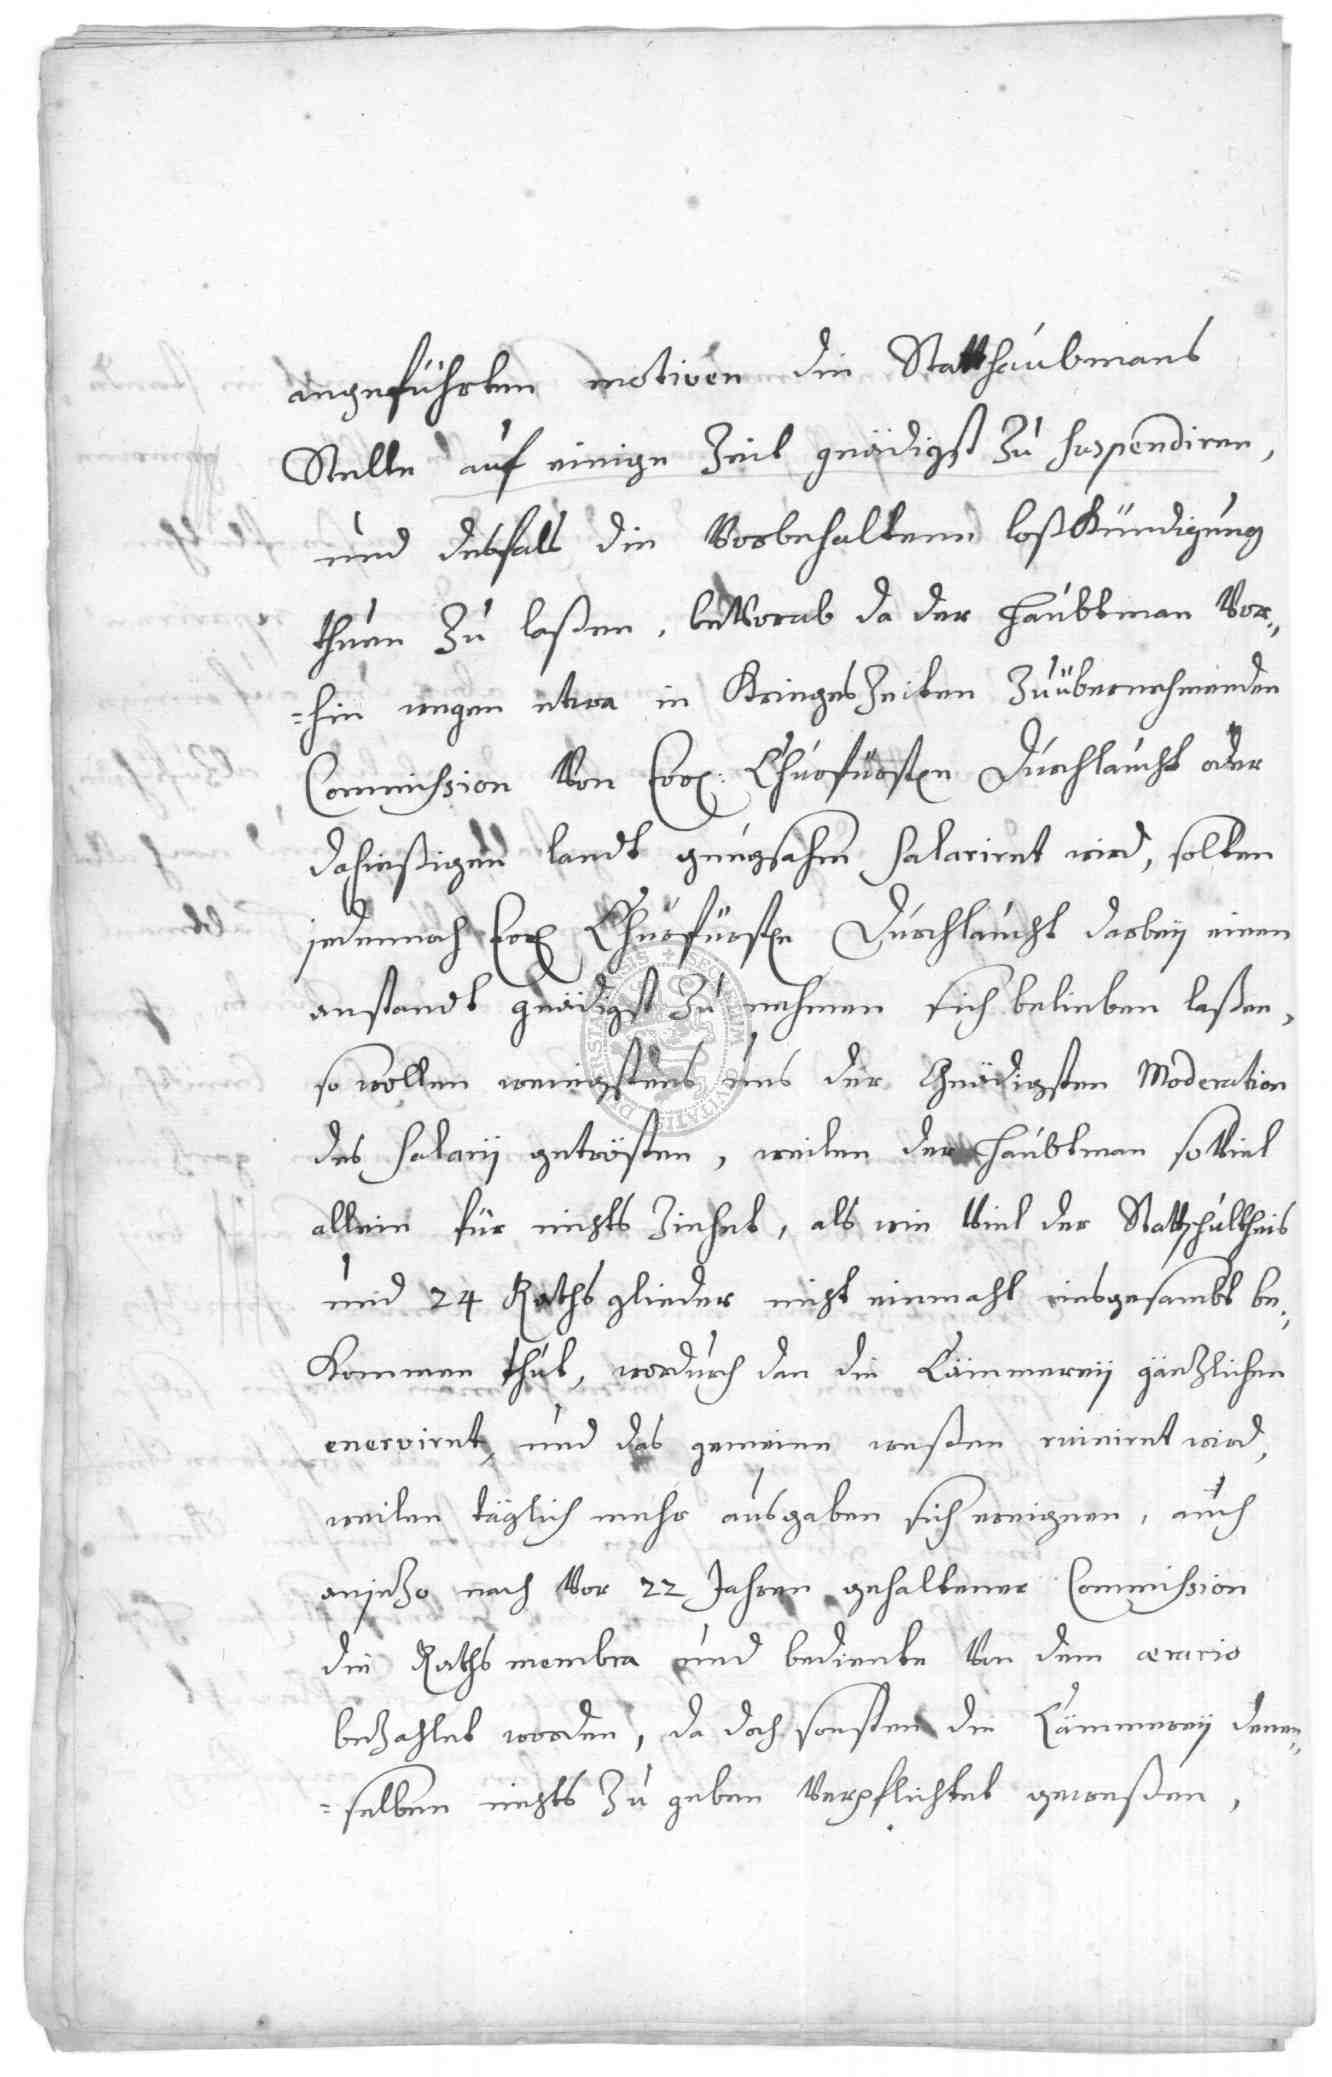 angeführten motiven die Statthaubtmans
Stelle auf einige Zeit gnädigst Zu suspendiren,
und desfals die Vorbehaltene loßkündigung
thuen Zu laßen, beVorab da der Haubtman Vor„
=hin wegen etwa in KriegesZeiten Zuübernehmenden
Commission Von Ewr: Churfürsten Durchlaucht oder
dasießigen landt gnugsahm salariret wird, solten
jedennoch Ewr Churfürsten Durchlaucht darbeÿ einen
anstandt gnädigst Zu nehmen sich belieben laßen,
so wollen wenigstens uns der Gnädigsten Moderation
des salarÿ getrösten, weilen der Haubtman soViel
allein für nichts Ziehet, als wie Viel der Stattschultheis
und 24 Rathsglieder nicht einmahl insgesambt be„
Kommen thut, wordurch dan die Cämmereÿ gäntzlichen
enerviret, und das gemeine weßen ruiniret wird,
weilen täglich mehr ausgaben sich ereignen, auch
anjetzo nach Vor 22 Jahren gehaltener Commission
die Raths membra und bediente Von dem aerario
beZahlet worden, da doch sonsten die Cämmereÿ denen„
=selben nichts Zu geben Verpflichtet geweßen,
SECRETUM CIVITATIS